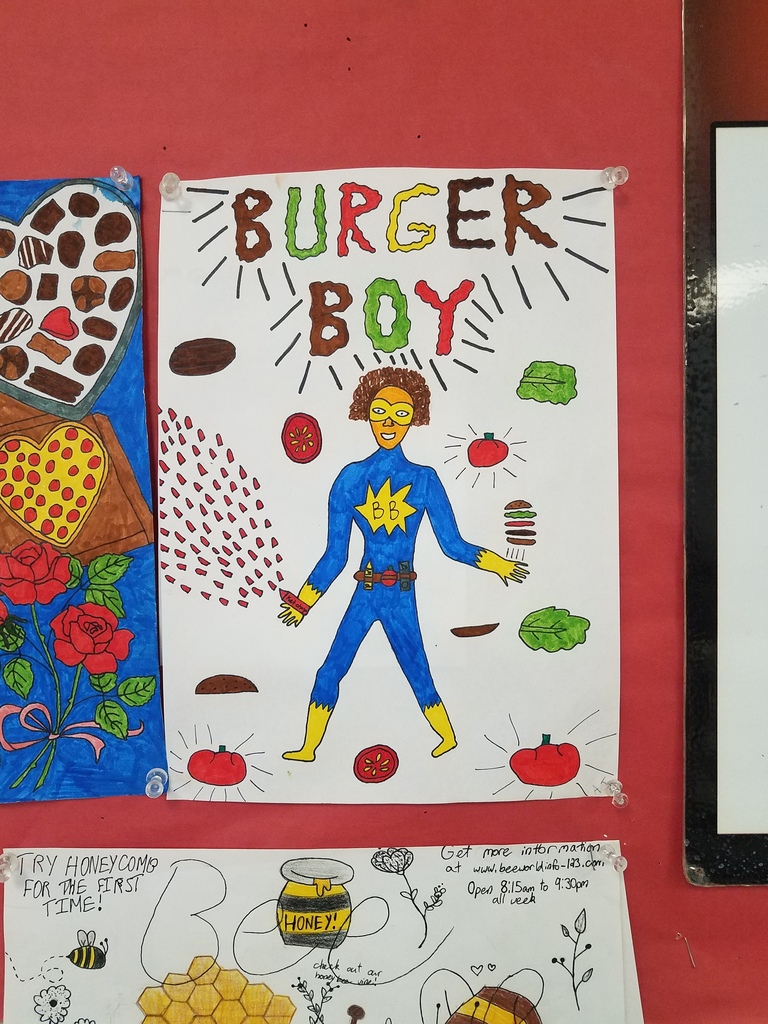 BURGER
BOY
BB
TRY HONEYCOMB
FOR THE FIRST
TIME!
Bee
HONEY!
check out our
honey bee wine!
Get more information
at www.beeworldinfo-123.com
Open 8:15am to 9:30pm
all week